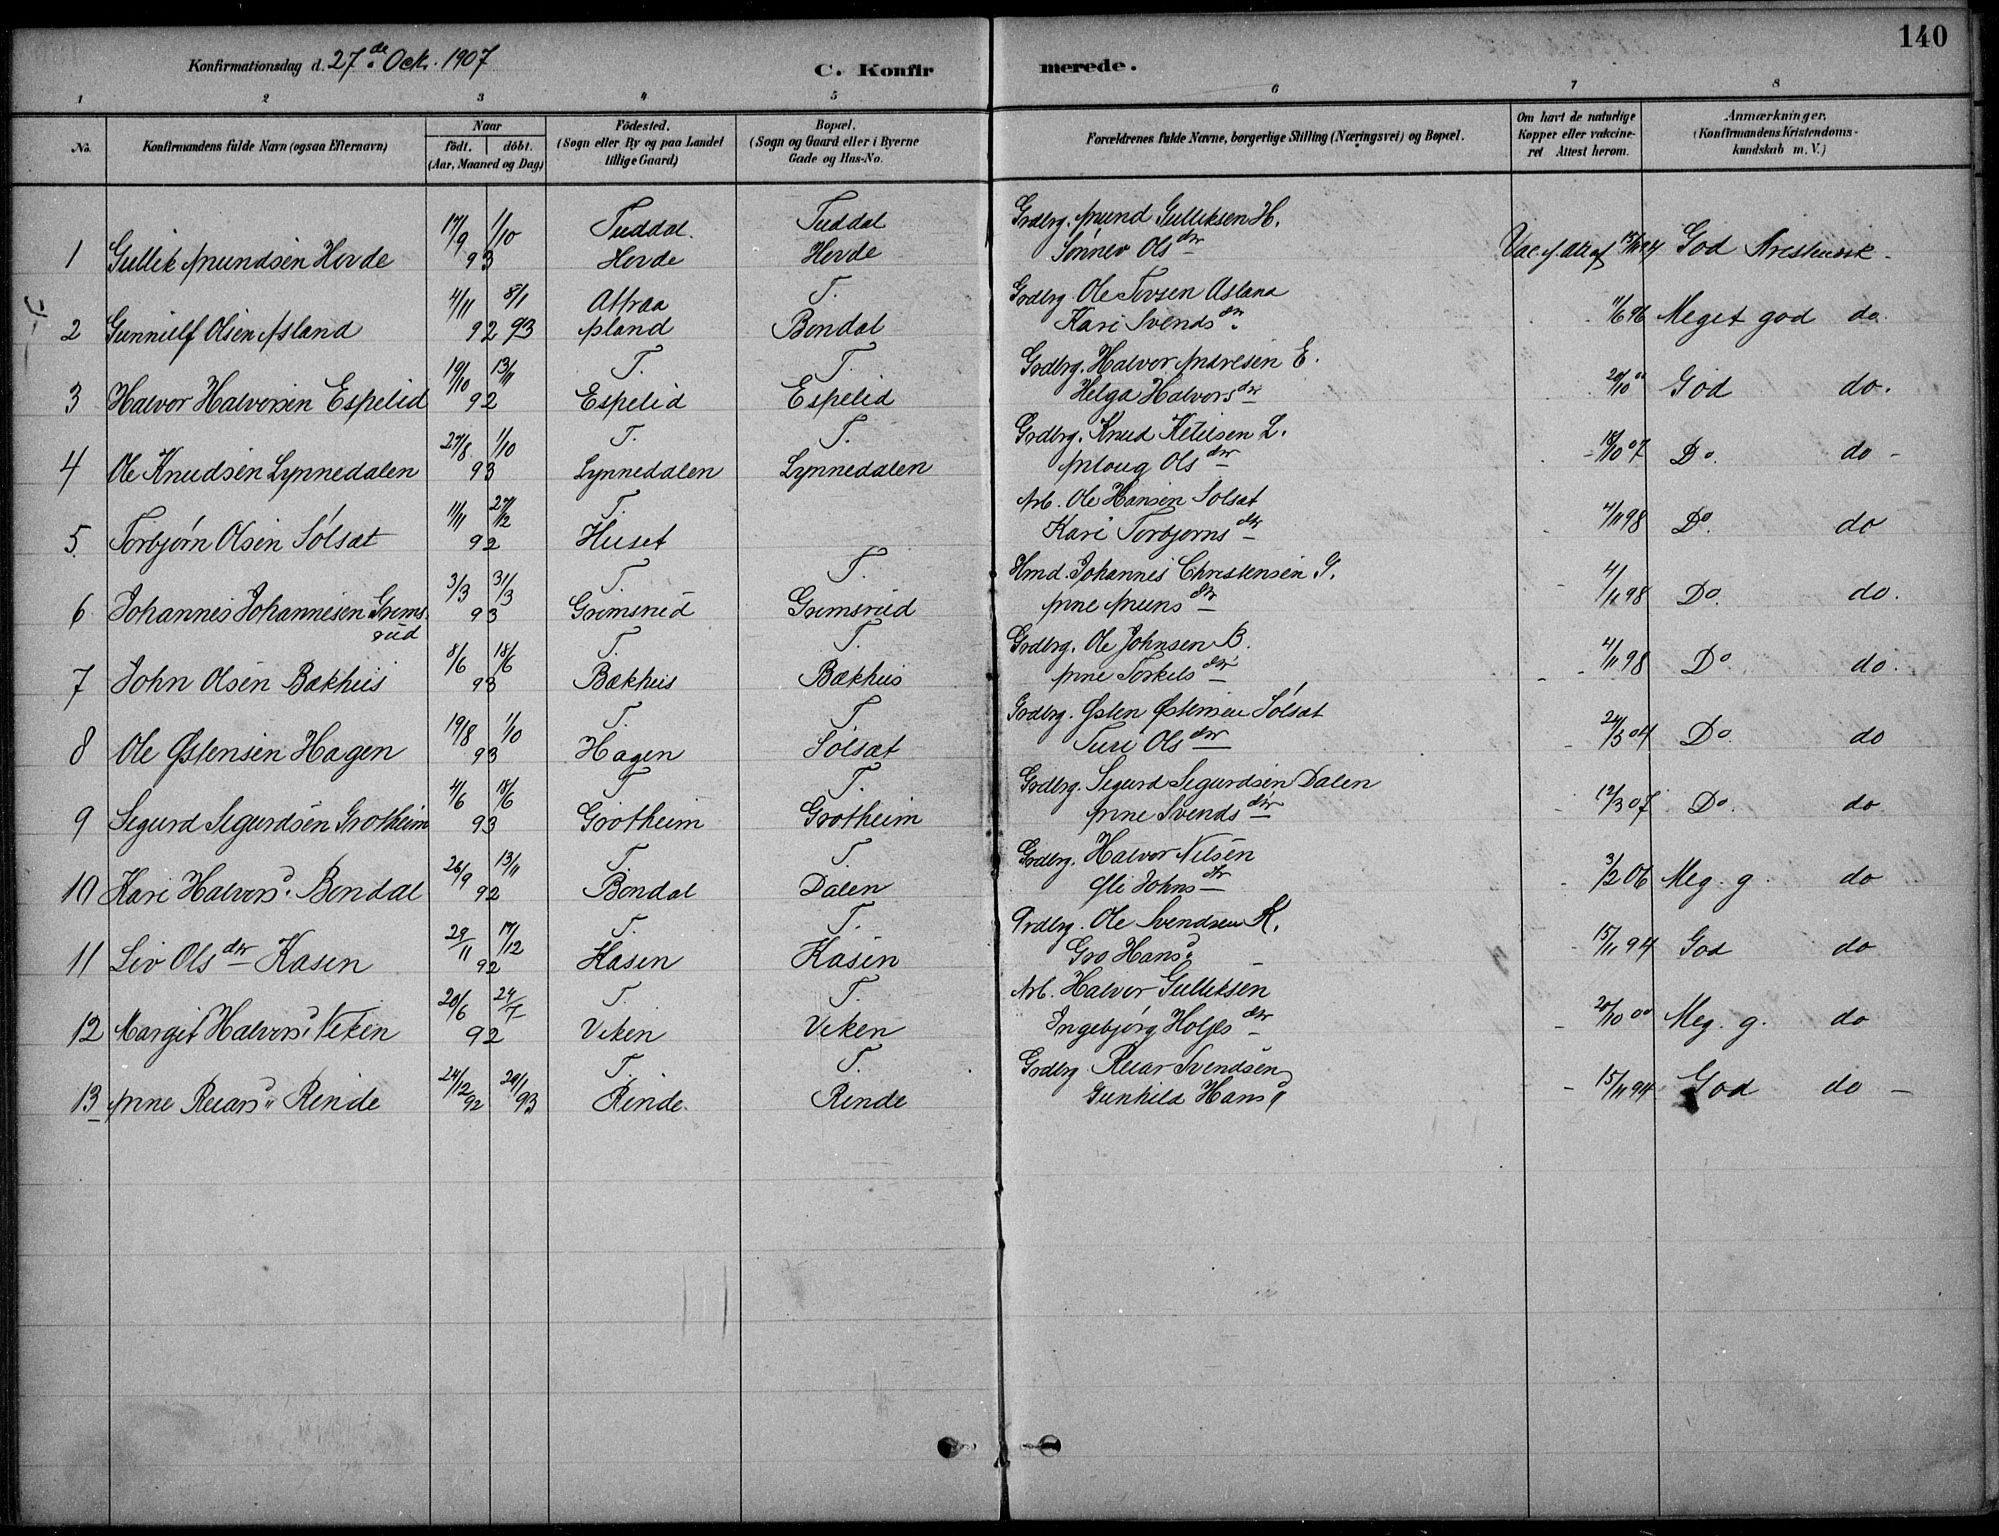 140
Konfirmationsdag d. 27de Oct. 1907
C. Konfirmerede.
1 2 3 4 5 6 7 8
No.
Konfirmandens fulde Navn (ogsaa Efternavn)
Naar
født. døbt.
(Aar, Maaned og Dag)
Födested.
(Sogn eller By og paa Landet
tillige Gaard)
Bopæl.
(Sogn og Gaard eller i Byerne
Gade og Hus-No.
Forældrenes fulde Navne, borgerlige Stilling (Næringsvei) og Bopæl.
Om havt de naturlige
Kopper eller vakcine-
ret Attest herom.
Anmærkninger,
(Konfirmandens Kristendoms-
kundskab m. V.)
17/9 1/10 Tuddal. Tuddal Grdbrg. Amund Gulliksen H.
1 Gullik Amundsen Hovde 93 Hovde Hovde Sønnev Olsdtr Vac. 15/11 94 God
4/11 8/1 Attraa T. Grdbrg. Ole Aslana
2 Gunnulf Olsen Asland 92 93 Asland Bondal Kari Svendsdtr. 11/6 96 Meget god do.
19/10 13/11 T. T. Grdbrg. Halvor Andresen E.
3 Halvor Halvorsen Espelid 92 Espelid Espelid Helga Halvorsdtr 20/10 00 God do.
27/8 1/10 T. T. Grdbrg. Knud Ketilsen L.
4 Ole Knudsen Lynnedalen 93 Lynnedalen Lynnedalen Aaloug Olsdtr 18/10 07 Do. do -
11/11 27/12 T. Arb. Ole Hansen Sølsæt
5. Torbjørn Olsen Sølsæt 92 Huset Kari Torbjørnsdtr 4/11 98 Do. do
3/3 31/3 T. T. Hmd. Johannes Christensen G.
6 Johannes Johannesen Grimsrud 93 Grimsrud Grimsrud Anne Amunsdtr 4/11 98 Do. do.
8/6 18/6 T. T. Grdbrg. Ole Johnsen B.
7 John Olsen Bækhus 93 Bækhus Bækhus Anne Torkelsdtr 4/11 98 Do do.
19/8 1/10 T. T. Grdbrg. Østen Østensen Sølsæt
8 Ole Østensen Hagen 93 Hagen Sølsæt Turi Olsdtr 24/3 04 Do. do
4/6 18/6 T T. Grdbrg. Sigurd Sigurdsen Dalen
9 Sigurd Sigurdsen Grotheim 93 Grotheim Grotheim Anne Svendsdtr 12/3 07 Do. do
26/9 13/11 T. T. Grdbrg. Halvor Nilsen
10 Kari Halvorsd. Bondal 92 Bondal Dalen Johnsdtr 3/2 06 Meg. g. do
29/11 17/12 T. T. Grdbrg. Ole Svendsen K.
11 Liv Olsdtr Kasen 92 Kasen Kasen Gro Hansd. 15/11 94 God do
20/6 24/7 T. T. Arb. Halvor Gulliksen
12 Margit Halvorsd. Veken 92 Veken Veken Ingebjørg Holjesdtr 20/10 00 Meg. g. do
24/12 92 29/1 93 T. T. Grdbrg. Reiar Svendsen
13 Anne Reiarsd. Rinde Rinde. Rinde Gunhild Hansd. 15/11 94 God do -